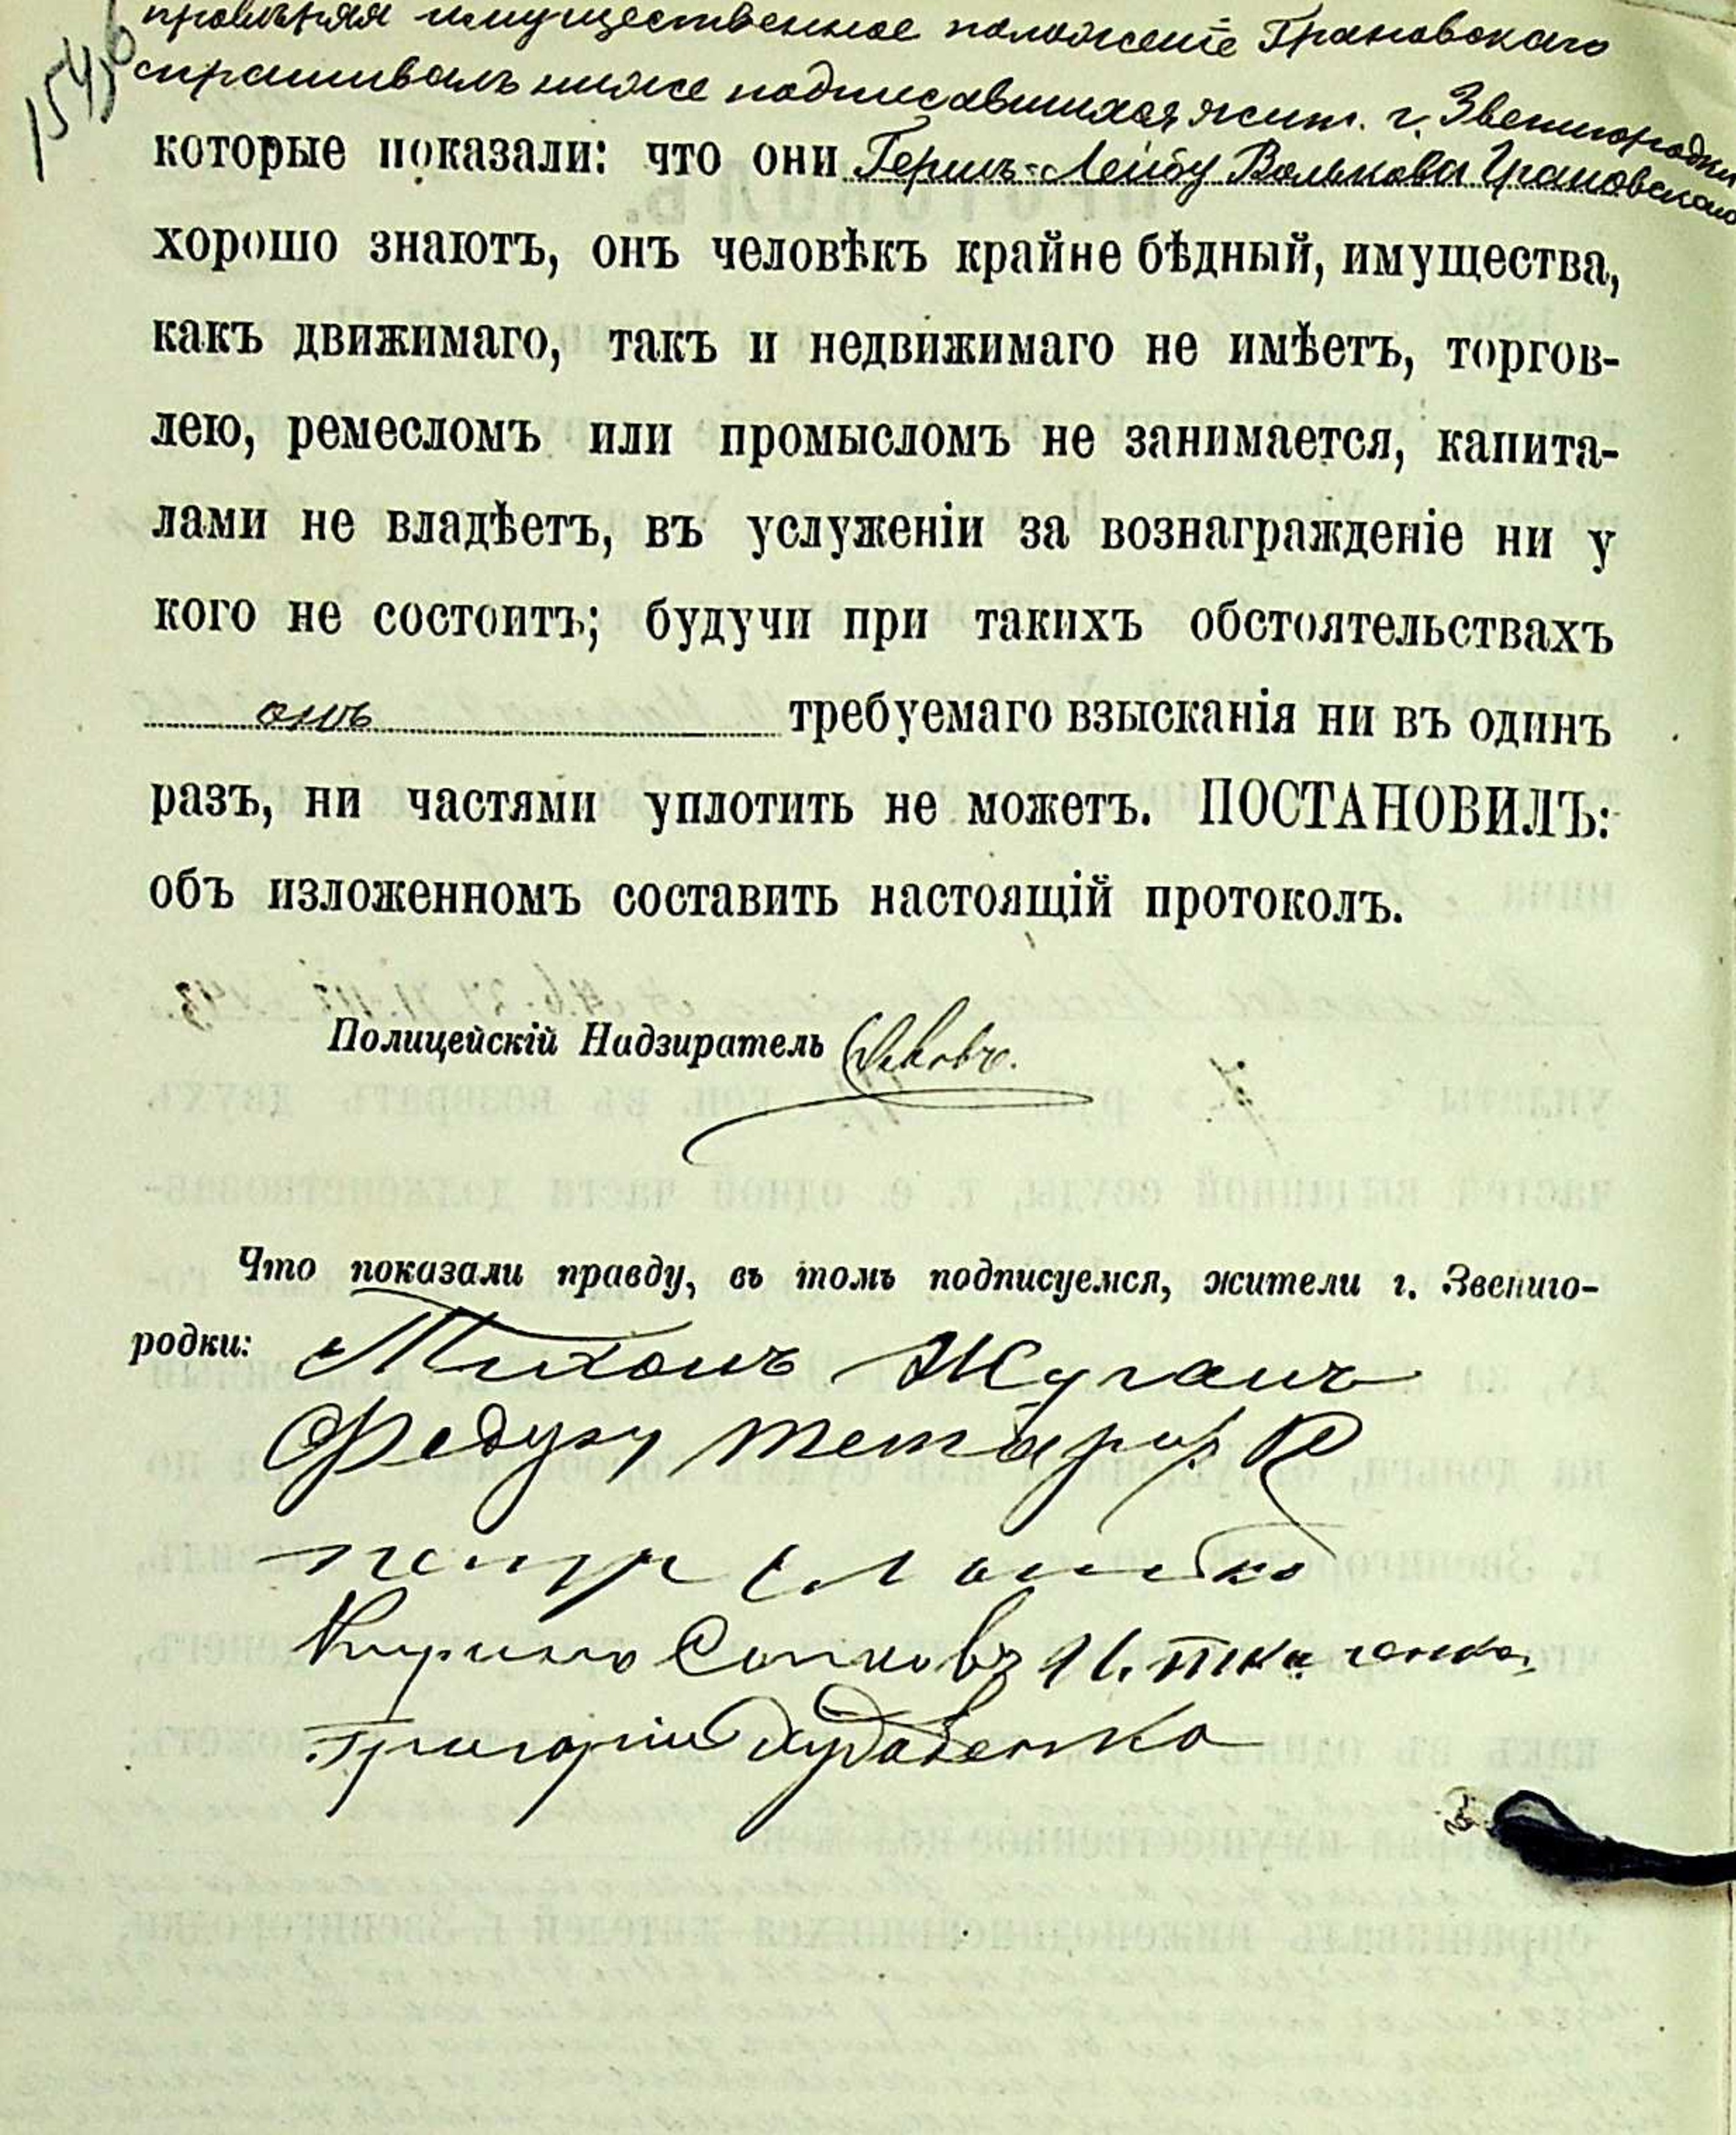 провѣряя имущественное положеніе Грановскаго
спрашивалъ ниже подписавшихся жит. г. Звенигородки
которые показали: что они Гершъ-Лейбу Волькова Грановскаго
хорошо знаютъ, онъ человѣкъ крайне бѣдный, имущества,
какъ движимаго, такъ и недвижимаго не имѣетъ, торгов-
лею, ремесломъ или промысломъ не занимается, капита-
лами не владѣетъ, въ услуженіи за вознагражденіе ни у
кого не состоитъ; будучи при такихъ обстоятельствахъ
онъ требуемаго взысканія ни въ одинъ
разъ, ни частями уплотить не можетъ. ПОСТАНОВИЛЪ:
объ изложенномъ составить настоящій протоколъ.
Полицейскій Надзиратель
Что показали правду, въ томъ подписуемся, жители г. Звениго-
родки: Тихонъ Жуганъ
петр
Кирило
Григорий